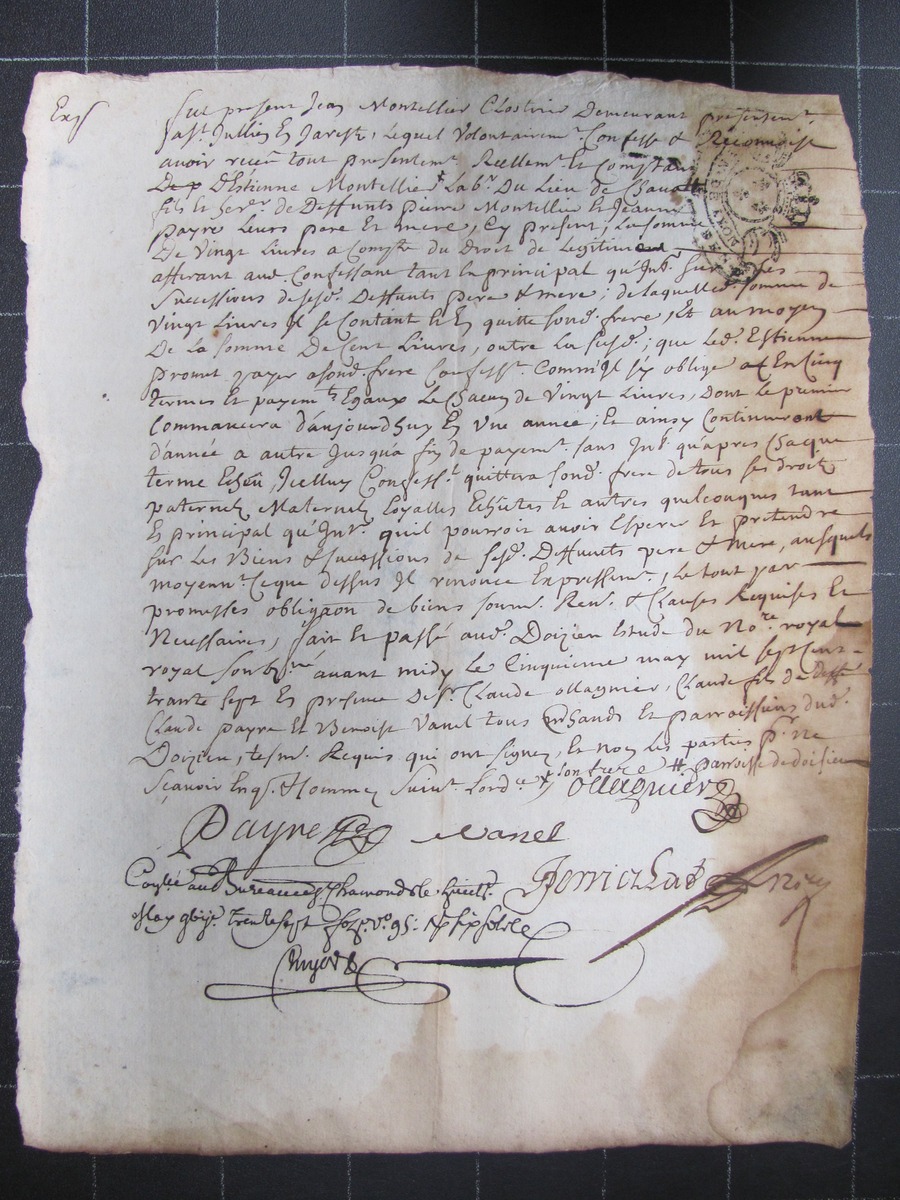 Exp
fut present Jean Montellier Clostrier Demeurant presentemt
a st Jullien En Jarest, Lequel Volontairemt Confesse & Reconnoist
avoir receu tout presentemt Reellemt Et Comptant
D'Estienne Montellier Labr Du Lieu de
fils et herer de Deffunts pierre Montellier Et Jeanne
payre Leurs pere Et mere, Cy present, La somme
De Vingt Livres a Compte du Droit de Legitime
afferant aud Confessant tant En principal qu'Intr sur les
Successions desesd. Deffunts pere & mere; de laquelle somme de
Vingt Livres Il se Contant Et En quitte sond. frere, Et au moyen
De la somme De Cent Livres, outre la susd; que led. Estienne
promet payer asond. frere Confesst. Comm'Il s'y oblige En Cinq
termes et payemts Egaux Le Chacun de Vingt Livres, Dont le premier
Commancera d'aujourdhuy En Une année; Et ainsy Continueront
d'année a autre Jusqu'a fin de payemt. sans Intr. qu'apres Chaque
terme Echeu, Icelluy Confesst. quittera sond. frere de tous ses droits
paternels Maternels Loyalles Echutes Et autres quelconques tant
En principal qu'Intr. qu'il pourroit avoir Esperer Et pretendre
sur les Biens & successions de sesd. Deffunts pere & Mere, ausquels
moyennt. Ceque dessus Il renonce Expressemt., Le tout par
promesses obligaon de biens soumr. Renr. & Clauses Requises Et
Necessaires, fait Et passé aud. Doizieu Estude du Nore. royal
royal soubzné avant midy le Cinquieme may mil sept cent
trante sept En presence De sr. Claude ollagnier, Claude fils de defft
Claude payre Et Benoist Vanel tous mrchands Et parroissiens dud.
Doizieu, tesmr. Requis qui ont signez, Et non les parties pr. ne
sçavoir Enqr. & sommez suivt. Lorde. parroisse de doisieu
ollagnier
Payre Vanel
Conlle au Bureau de st Chamond le
May trente sept fo. vo 95: